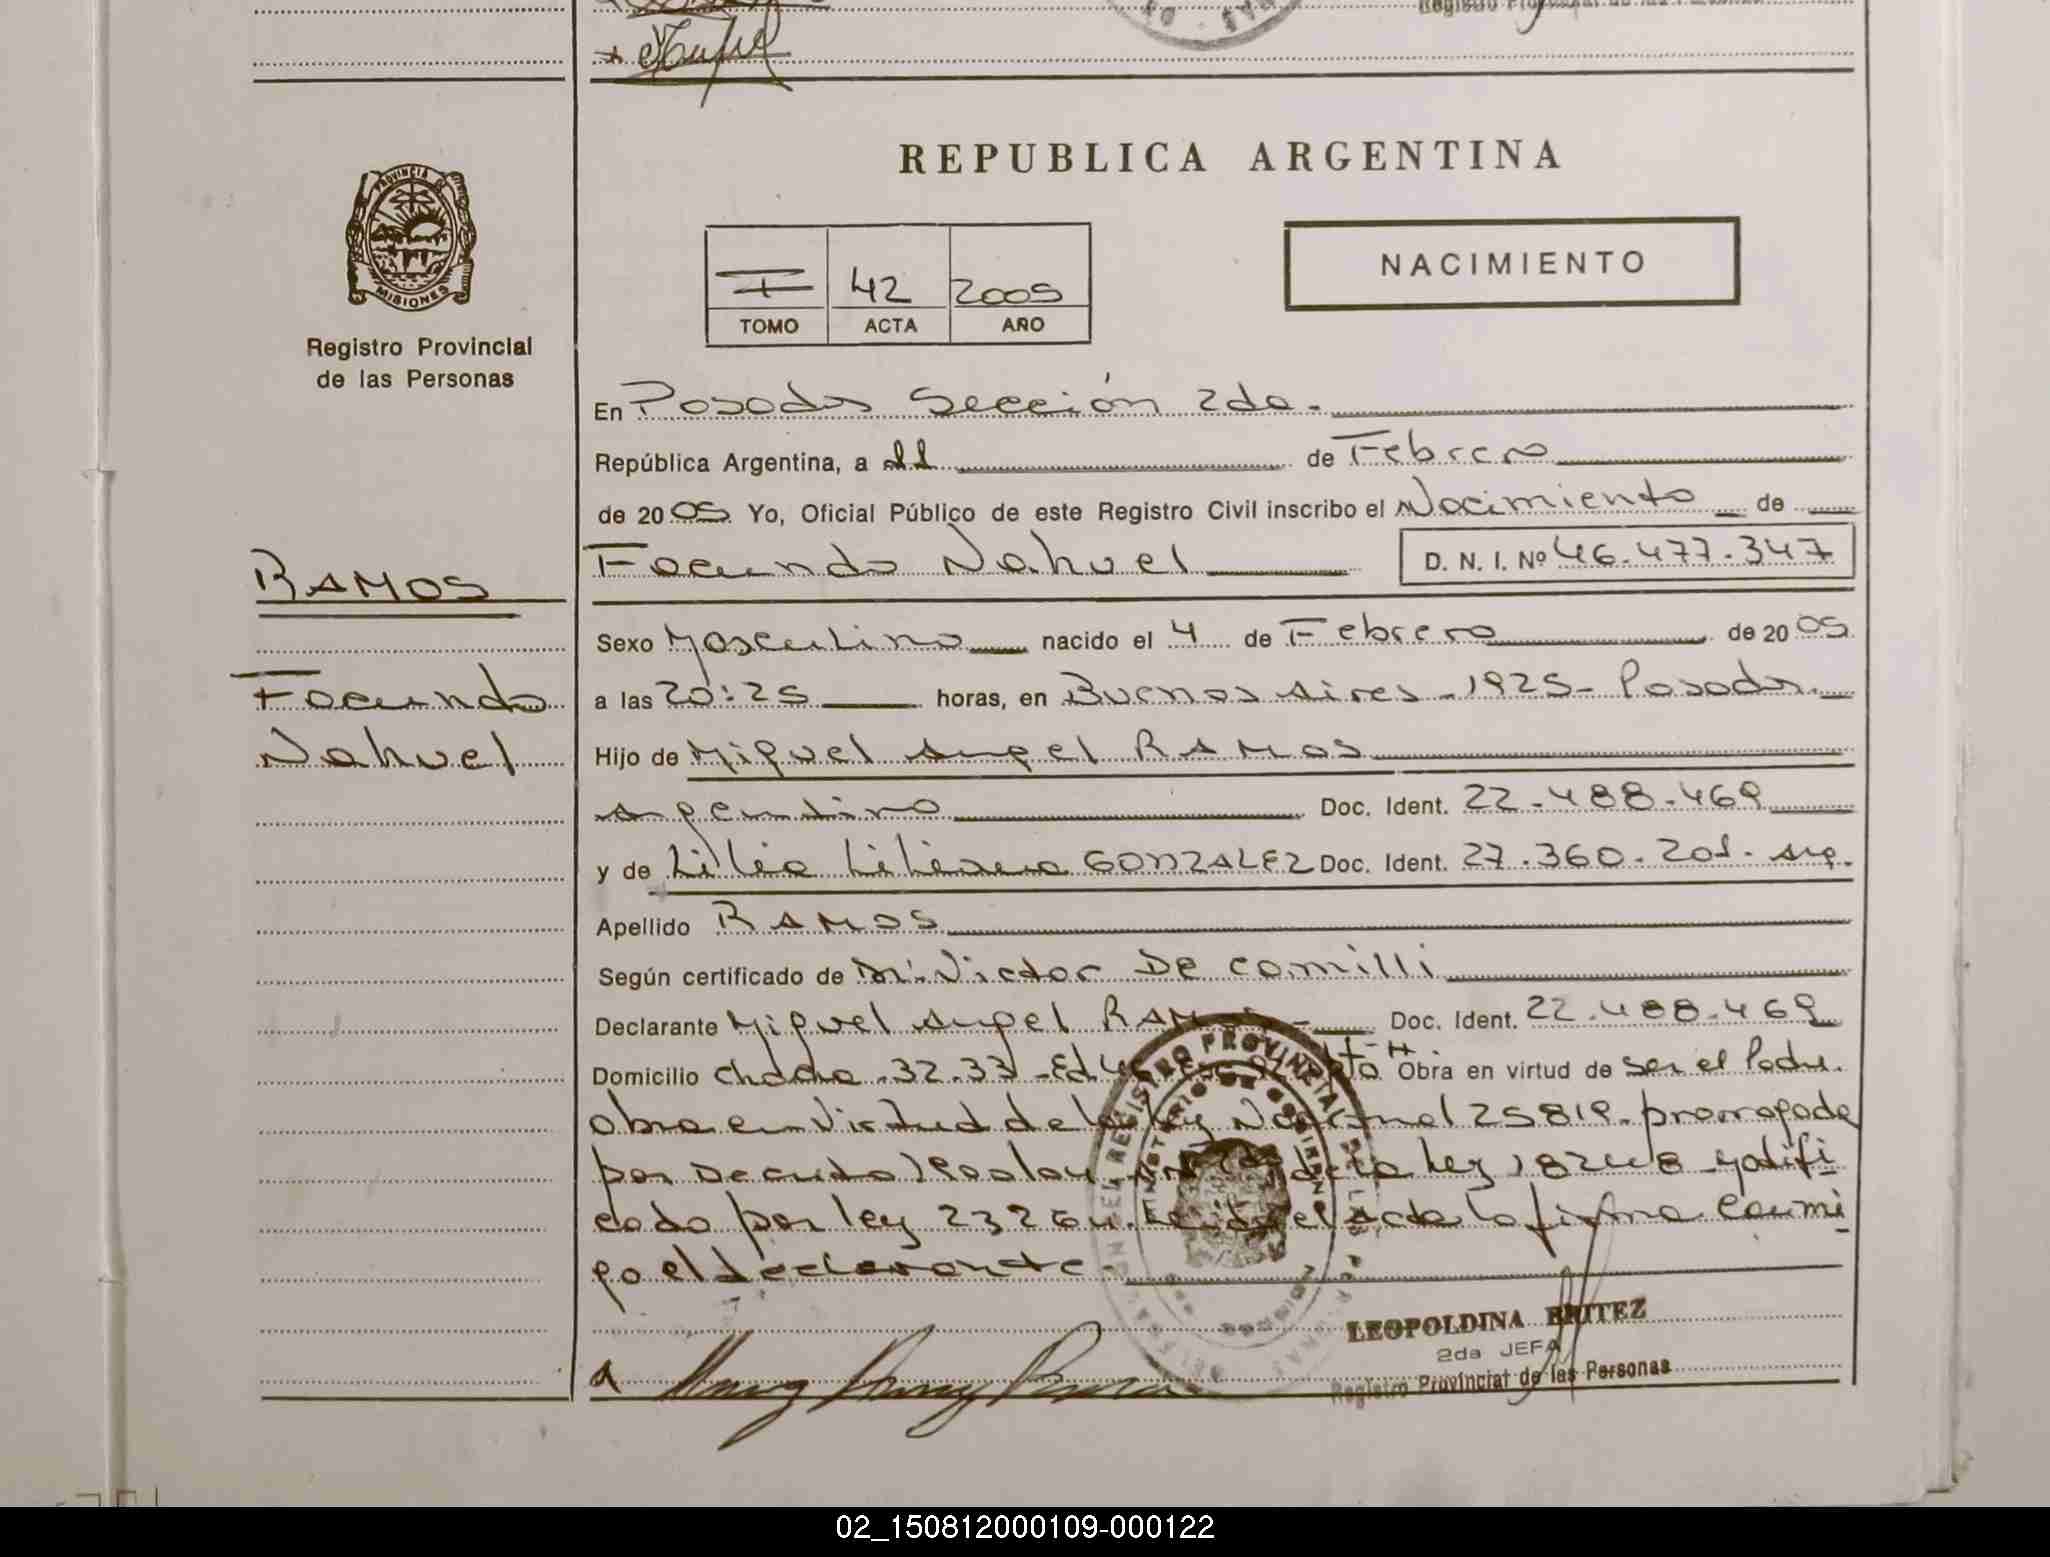 REPUBLICA ARGENTINA
PROVINCIA DE
MISIONES
Registro Provincial
de las Personas
I 42 2005
TOMO ACTA AÑO
NACIMIENTO
En Posadas Sección 2da.
República Argentina, a 11 de Febrero
de 2005 Yo, Oficial Público de este Registro Civil inscribo el Nacimiento de
Facundo Nahuel D. N. I. Nº 46.477.347
RAMOS
Facundo
Nahuel
Sexo Masculino nacido el 4 de Febrero de 2005
a las 20:25 horas, en Buenos Aires - 1925 - Posadas.
Hijo de Miguel Angel RAMOS
Argentino Doc. Ident. 22.488.469
y de Lilia Liliana GONZALEZ Doc. Ident. 27.360.201. arg.
Apellido RAMOS
Según certificado de Dr. Victor De Camilli
Declarante Miguel Angel RAMOS Doc. Ident. 22.488.469
Domicilio Chacra 32.33 - Ed. Obra en virtud de ser el Padre.
obra en virtud de la ley Nacional 25819. prorrogada
por Decreto de la ley 18248 y
cado por ley 23264. Leida el acta la firma conmi
go el declarante.
LEOPOLDINA BRITEZ
2da JEFA
Registro Provincial de las Personas
02_150812000109-000122